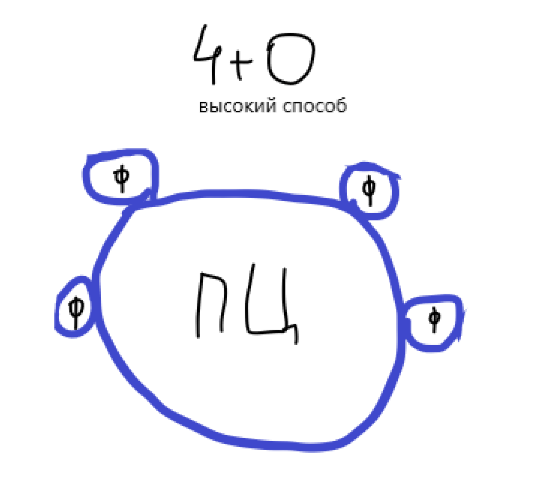 4+0
высокий способ
ф ф
ф ПЦ ф